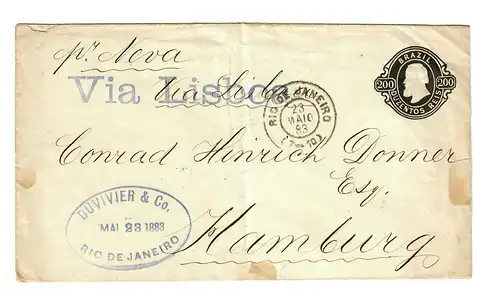 pr Neva
Via Lisboa
via Lisboa
BRAZIL
200 200
DUZENTOS REIS
RIO DE JANEIRO
23
MAIO
83
Conrad Hinrich Donner
Esq.
Hamburg
DUVIVIER & Co.
MAI 23 1883
RIO DE JANEIRO